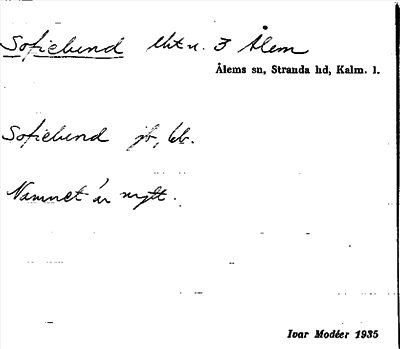 Sofielund lht u. 3 Ålem
Ålems sn, Stranda hd, Kalm. l.
Sofielund jb, kk.
Namnet är nytt.
Ivar Modéer 1935